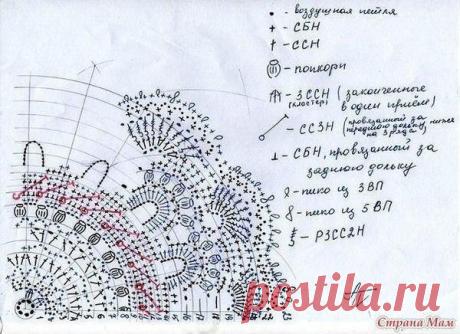 • - воздушная петля
+ - СБН
† - ССН
- попкорн
- 3ССН (законченные
(кластер) в один приём)
- СС3Н (провязанный за
переднюю дольку, ниже
на 3 ряда)
⊥ - СБН, провязанный за
заднюю дольку
- пико из 3 ВП
- пико из 5 ВП
- Р3СС2Н
postila.ru
Страна Мам